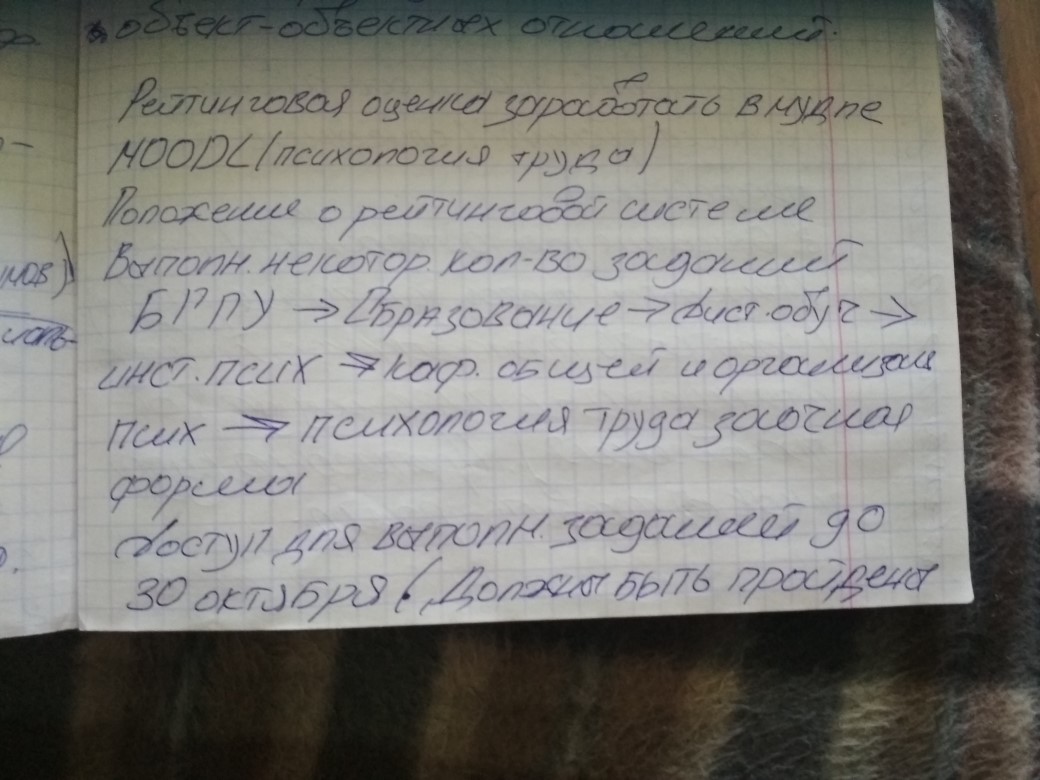 объект-объектных отношений.
Рейтинговая оценка заработать в мудле
MOODL (психология труда)
Положение о рейтинговой системе
Выполн. некотор. кол-во заданий
БГПУ → Образование → Дист. обуч →
инст. псих → каф. общей и организац
псих → психология труда заочная
форма
Доступ для выполн. заданий до
30 октября (Должны быть пройдены